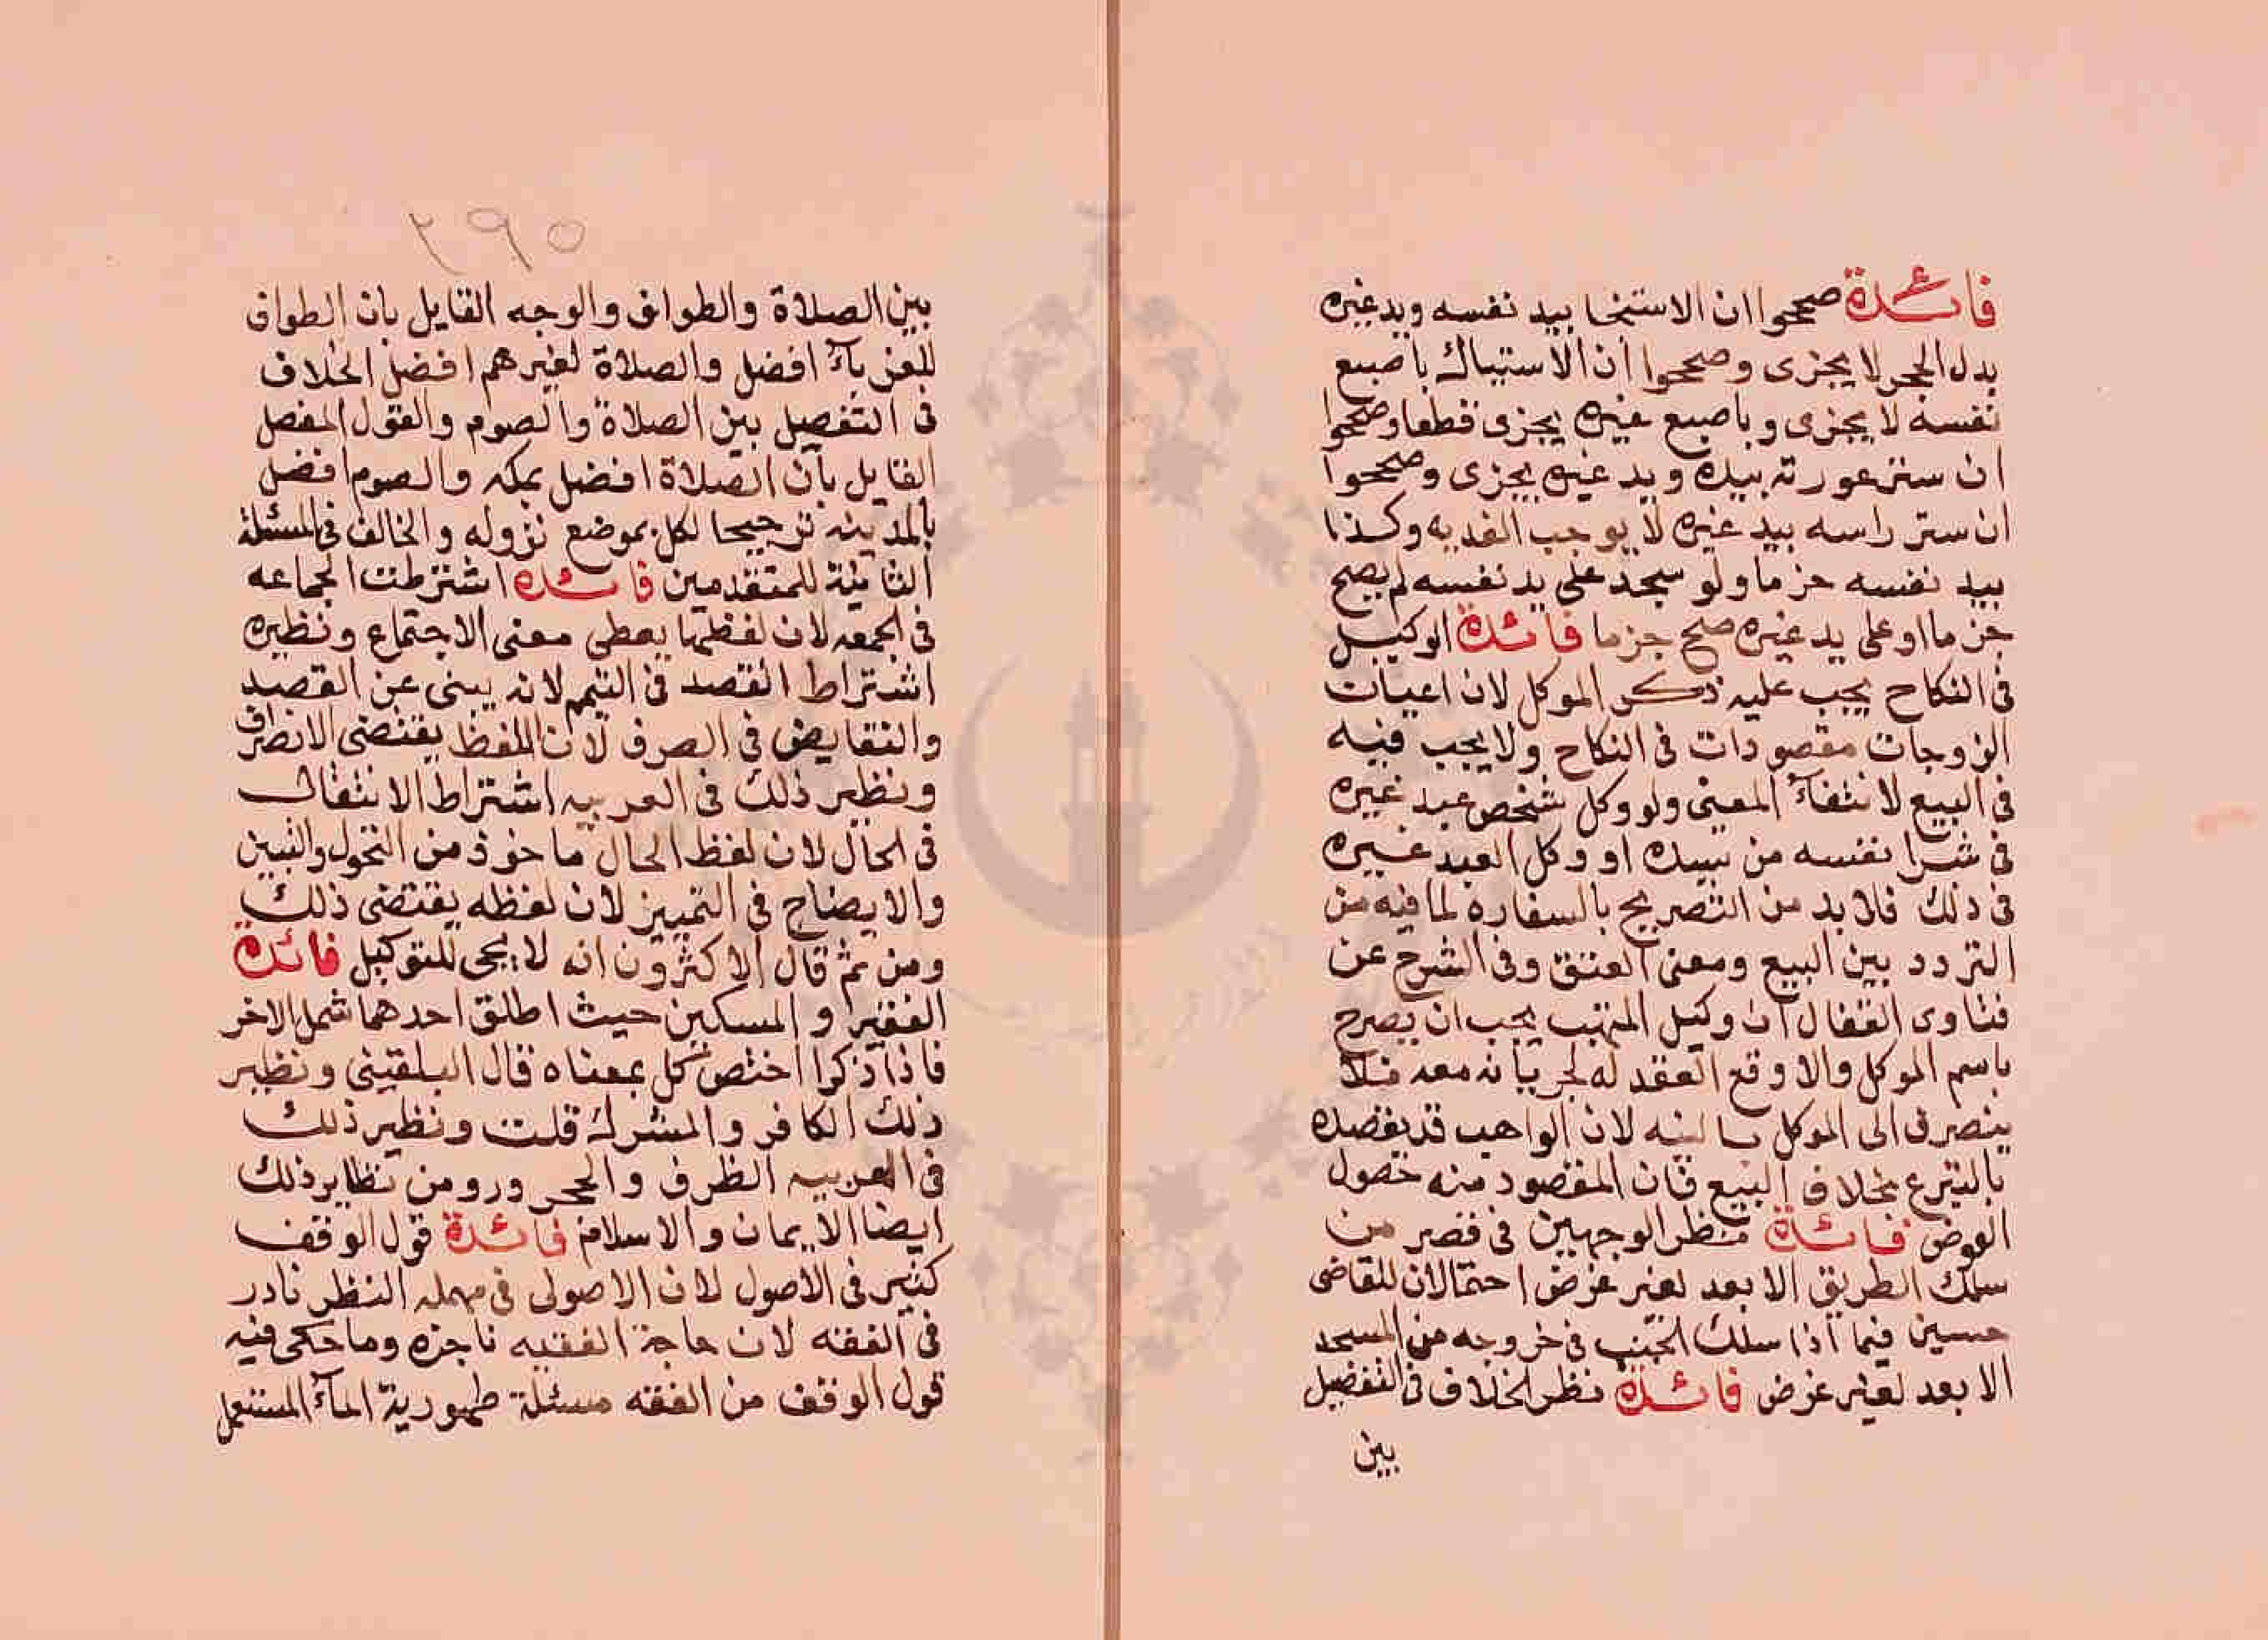 فائدة صححوا ان الاستنجا بيد نفسه ويد غيره
بدل الحجر لا يجزى وصححوا ان الاستياك باصبع
نفسه لا يجزى وباصبع غيره يجزى قطعا وصححوا
ان ستر عورته بيده ويد غيره يجزى وصححوا
ان ستر راسه بيد غيره لا يوجب الفديه وكذا
بيد نفسه حزما ولو سجد على يد نفسه لم يصح
جزما اوعلى يد غيره صح جزما فائدة الوكيل
فى النكاح يجب عليه ذكر الموكل لان اعيان
الزوجات مقصودات فى النكاح ولا يجب فيه
فى البيع لانتفآء المعنى ولو وكل شخص عبد غيره
فى شرا نفسه من سيده او وكل العبد غيره
فى ذلك فلا بد من التصريح بالسفاره لما فيه من
التردد بين البيع ومعنى العتق وفى الشرح عن
فتاوى القفال ان وكيل المتهب يجب ان يصرح
باسم الموكل والا وقع العقد له لجريانه معه فلا
ينصرف الى الموكل بالنيه لان الواهب قد يقصده
بالتبرع بخلاف البيع فان المقصود منه حصول
العوض فائدة نظر الوجهين فى قصر من
سلك الطريق الابعد لغير غرض احتمالان للقاضى
حسين فيما اذا سلك الجنب فى خروجه من المسجد
الابعد لغير غرض فائدة نظر الخلاف فى التفضيل
بين
٢٩٥
بين الصلاة والطواف والوجه القايل بان الطواف
للغربآء افضل والصلاة لغيرهم افضل الخلاف
فى التفصيل بين الصلاة والصوم والقول المفصل
القايل بان الصلاة افضل بمكه والصوم افضل
بالمدينه ترجيحا لكل بموضع نزوله والخالف فى المسئلة
الثانية للمتقدمين فائده اشترطت الجماعه
فى الجمعه لان لفظها يعطى معنى الاجتماع ونظيره
اشتراط القصد فى التيمم لانه ينبى عن القصد
والتقابض فى الصرف لان اللفظ يقتضى الانصراف
ونظير ذلك فى العربيه اشتراط الانتقال
فى الحال لان لفظ الحال ماخوذ من التحول والتبين
والايضاح فى التمييز لان لفظه يقتضى ذلك
ومن ثم قال الاكثرون انه لا يجى للتوكيل فائدة
الفقير و المسكين حيث اطلق احدهما شمل الاخر
فاذا ذكرا اختص كل بمعناه قال البلقينى ونظير
ذلك الكافر والمشرك قلت ونظير ذلك
فى العربيه الظرف والمجرور ومن نظاير ذلك
ايضا الايمان والاسلام فائدة قول الوقف
كثير فى الاصول لان الاصولى فى مهمله النظر نادر
فى الفقه لان حاجة الفقيه ناجزه وما حكى فيه
قول الوقف من الفقه مسئلة طهورية المآء المستعمل